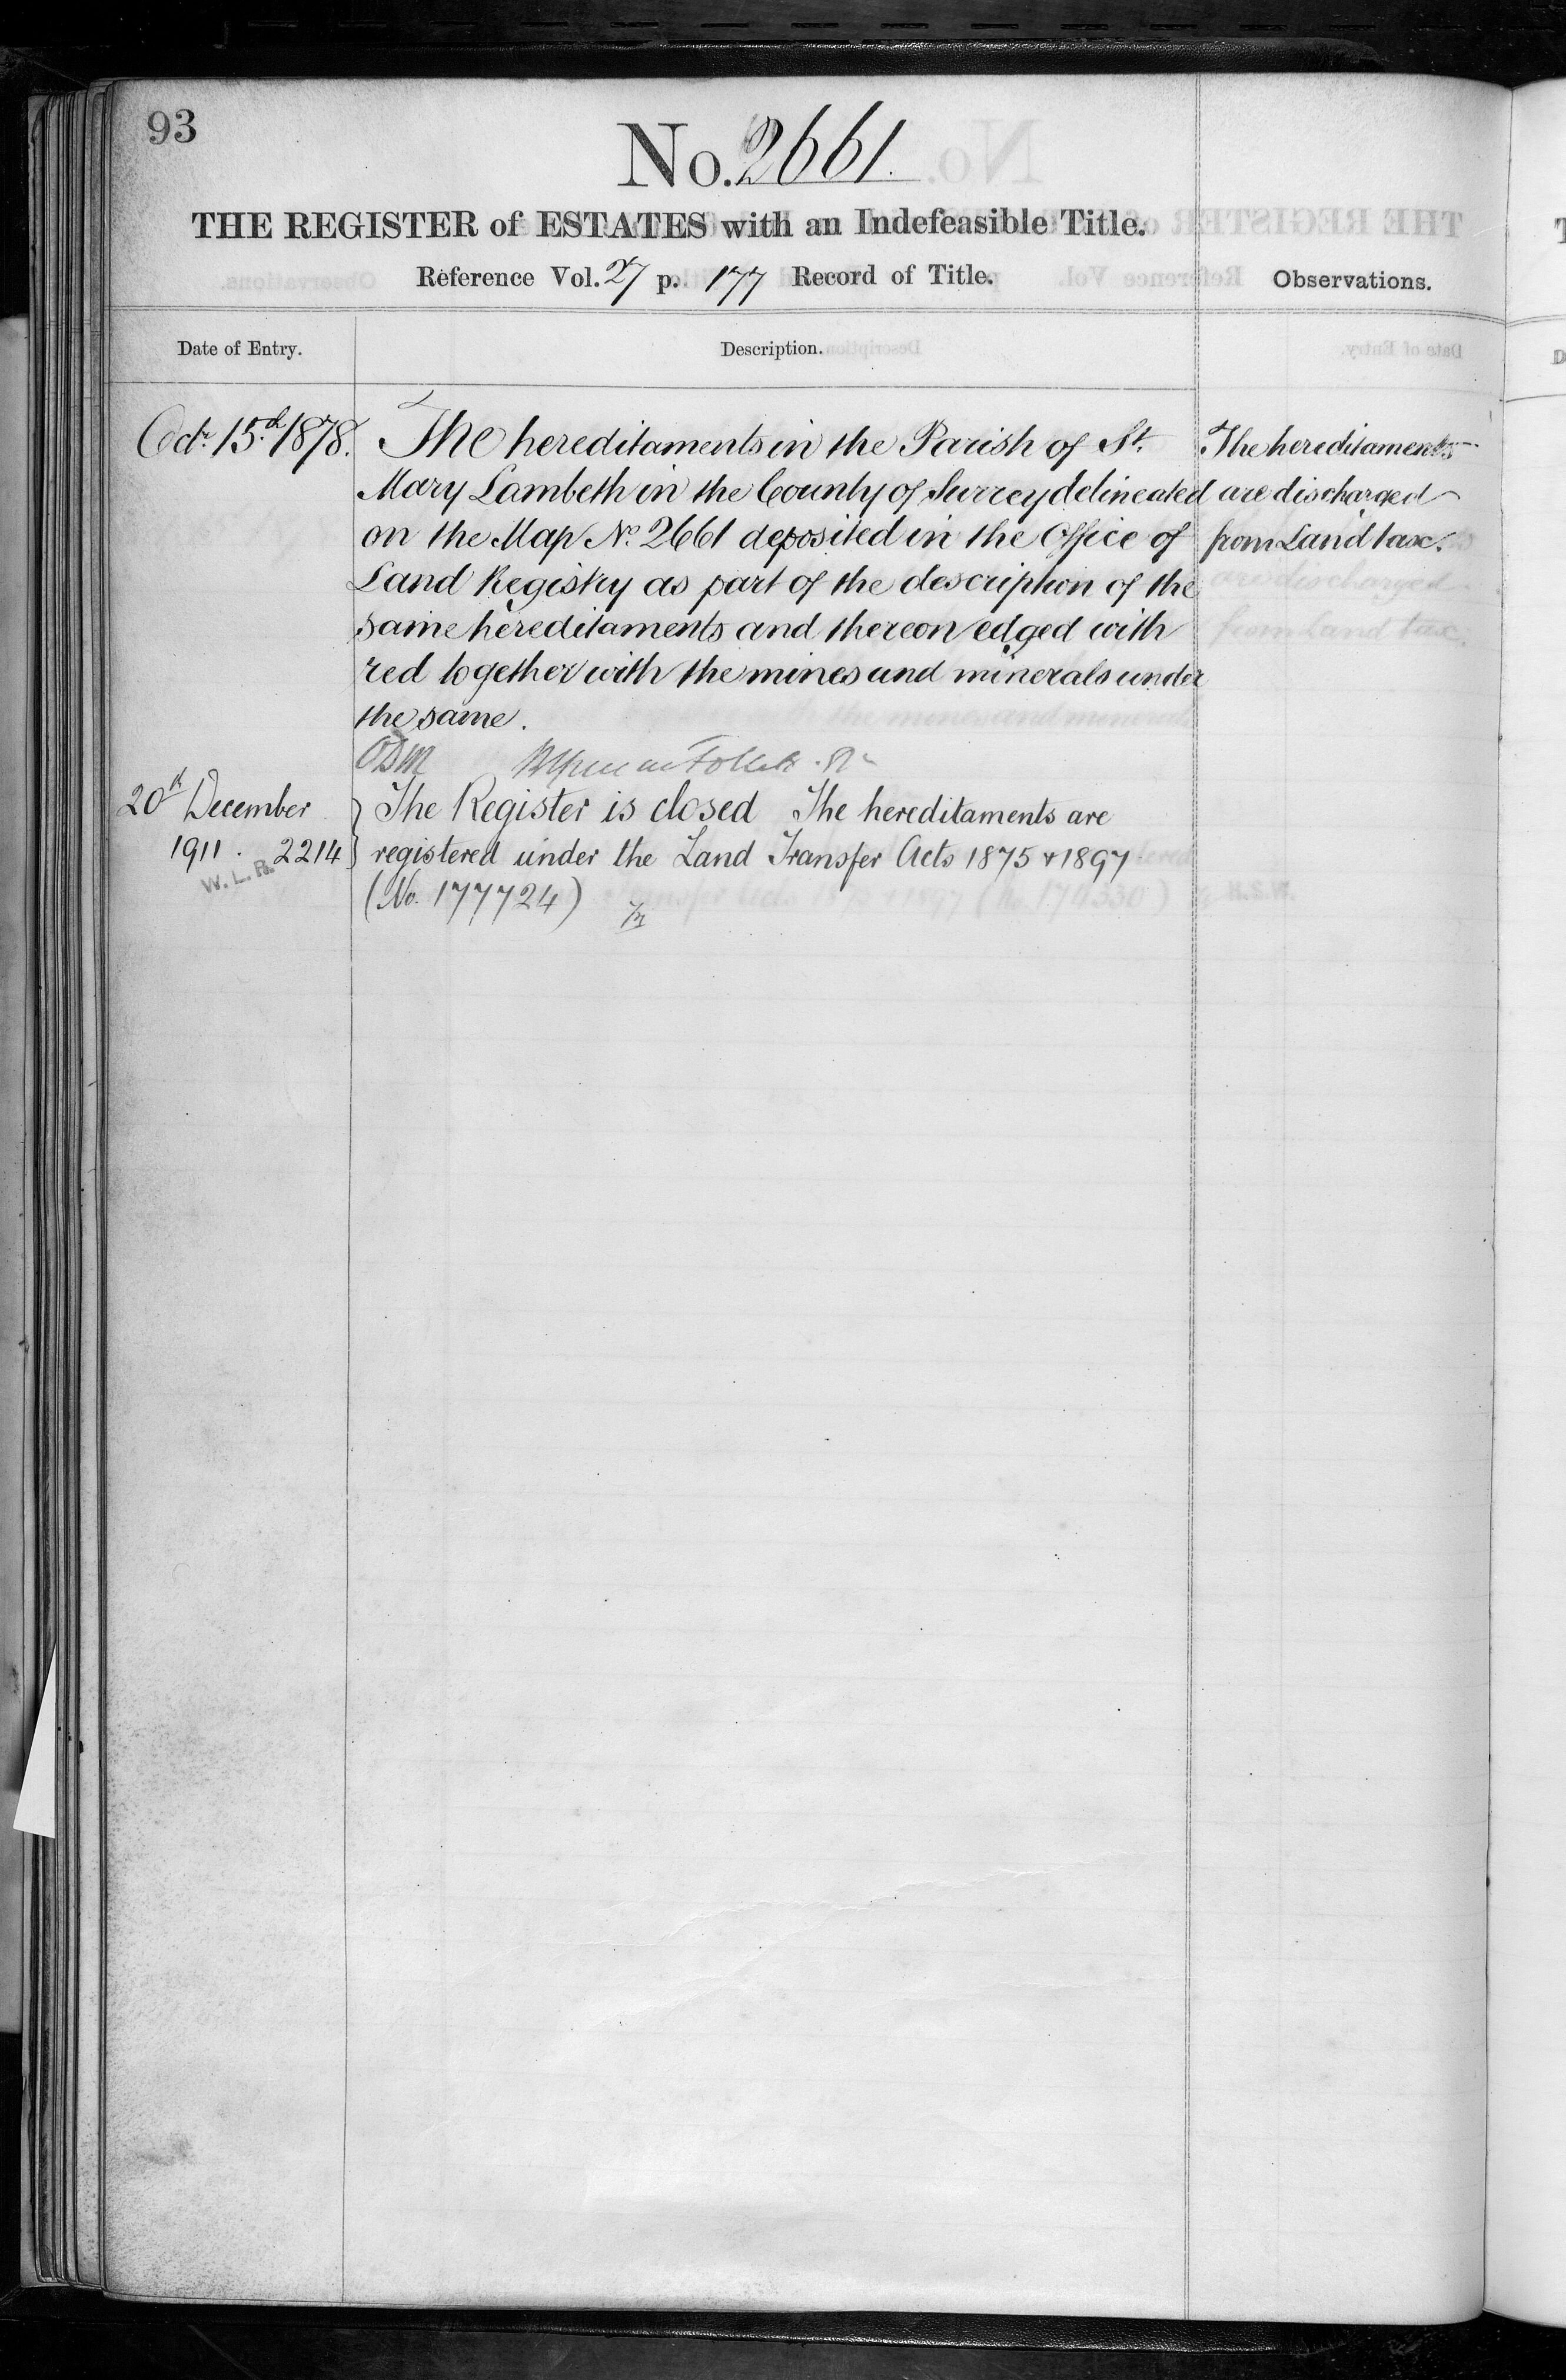 93
No. 2661.
THE REGISTER of ESTATES with an Indefeasible Title.
Reference Vol. 27 p. 177 Record of Title.
Observations.
Date of Entry.
Description.
Octr. 15th 1878.
The hereditaments in the Parish of St.
Mary Lambeth in the County of Surrey delineated
on the Map No. 2661 deposited in the Office of
Land Registry as part of the description of the
same hereditaments and thereon edged with
red together with the mines and minerals under
the same.
The hereditaments
are discharged
from Land tax.
20th December
1911. 2214
W. L. B.
The Register is closed The hereditaments are
registered under the Land Transfer Acts 1875 & 1897
(No. 177724)